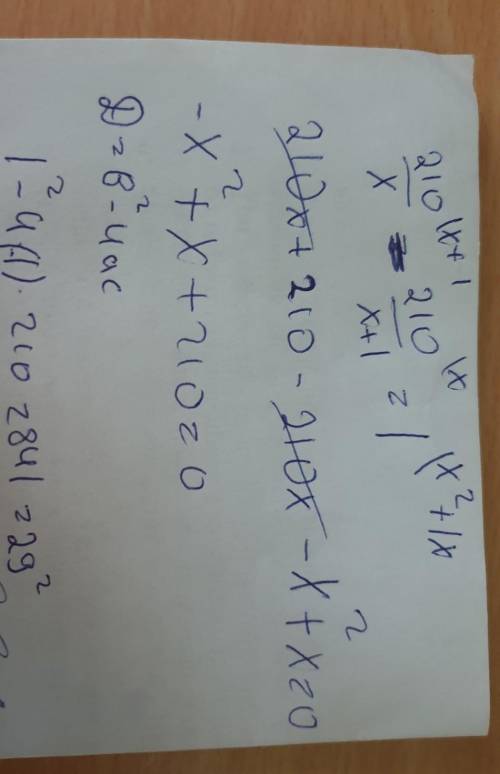 210/x \x+1 - 210/(x+1) \x = 1 \x²+1x
210x + 210 - 210x - x² + x = 0
-x² + x + 210 = 0
D = b² - 4ac
1² - 4(-1) · 210 = 841 = 29²